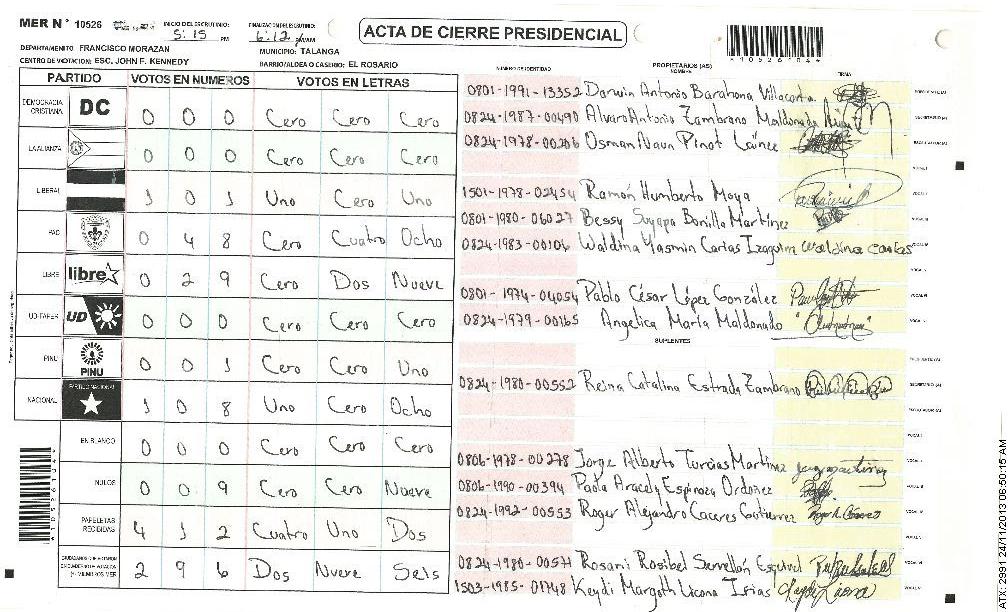 MER N° 10526
INICIO DEL ESCRUTINIO: 5:15 PM
FINALIZACION DEL ESCRUTINIO: 6:12
ACTA DE CIERRE PRESIDENCIAL
DEPARTAMENTO FRANCISCO MORAZAN
MUNICIPIO: TALANGA
CENTRO DE VOTACION: ESC. JOHN F. KENNEDY
BARRIO/ALDEA O CASERIO: EL ROSARIO
*10526104*
PARTIDO VOTOS EN NUMEROS VOTOS EN LETRAS
DEMOCRACIA CRISTIANA DC 0 0 0 Cero Cero Cero
LA ALIANZA 0 0 0 Cero Cero Cero
LIBERAL 1 0 1 Uno Cero Uno
PAC 0 4 8 Cero Cuatro Ocho
LIBRE libre 0 2 9 Cero Dos Nueve
UD-FAPER UD 0 0 0 Cero Cero Cero
PINU PINU 0 0 1 Cero Cero Uno
NACIONAL PARTIDO NACIONAL 1 0 8 Uno Cero Ocho
EN BLANCO 0 0 0 Cero Cero Cero
NULOS 0 0 9 Cero Cero Nueve
PAPELETAS RECIBIDAS 4 1 2 Cuatro Uno Dos
2 9 6 Dos Nueve Seis
*10526104*
NUMERO DE IDENTIDAD PROPIETARIOS (AS) NOMBRE FIRMA
0801-1991-13352 Darwin Antonio Barahona Villacorta
0824-1987-00490 Alvaro Antonio Zambrano Maldonado
0824-1978-00206 Osman Navn Pinot
1501-1978-02454 Ramón Humberto Moya
0801-1980-06027 Bessy Suyapa Bonilla Martínez
0824-1983-00106 Waldina Yasmin Carias Izaguirre Waldina Carias
0801-1974-04054 Pablo César López González
0824-1979-00165 Angelica María Maldonado
SUPLENTES
0824-1980-00552 Reina Catalina Estrada Zambrano
0806-1978-00278 Jorge Alberto Turcias Martínez
0806-1990-00394 Paola Aracely Espinoza Ordoñez
0824-1992-00553 Roger Alejandro Caceres Gutierrez
0824-1980-00571 Rosani Rosibel Servellón Esquivel
1503-1985-01748 Keydi Margoth Licona Irias
ATX-2991 24/11/2013 06:50:15 AM